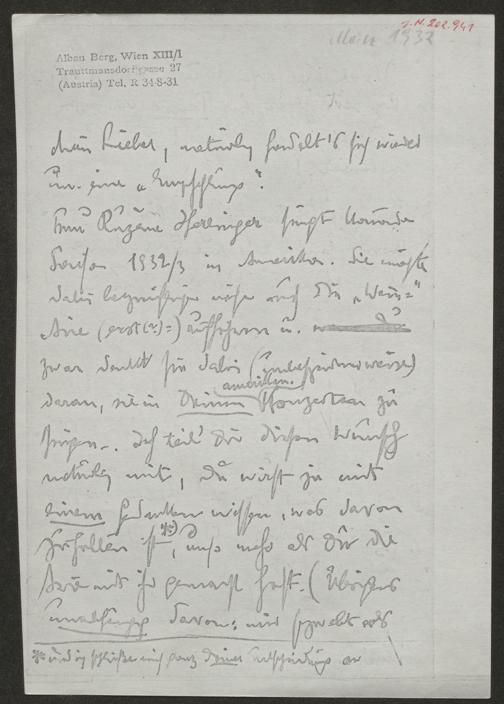 J.N. 202.941
März 1932
Alban Berg, Wien XIII/1
Trauttmansdorffgasse 27
(Austria) Tel. R 34-8-31
Mein Lieber, natürlich handelt's sich wieder
um eine „Empfehlung".
Frau Ružena Herlinger singt kommende
Saison 1932/3 in Amerika. Sie möchte
dabei begreiflicherweise auch die „Wein"-
Arie (erst(?)=) aufführen u.
zwar denkt sie dabei
daran, sie in Deinen amerikan. Konzerten zu
singen. Ich teil' Dir diesen Wunsch
natürlich mit, Du wirst ja mit
einem Gedanken wissen, was davon
zu halten ist *), umso mehr als Du die
Arie mit ihr gemacht hast. (Übrigens
unabhängig davon: mir schwebt
*) und ich schließe mich ganz Deiner Entscheidung an